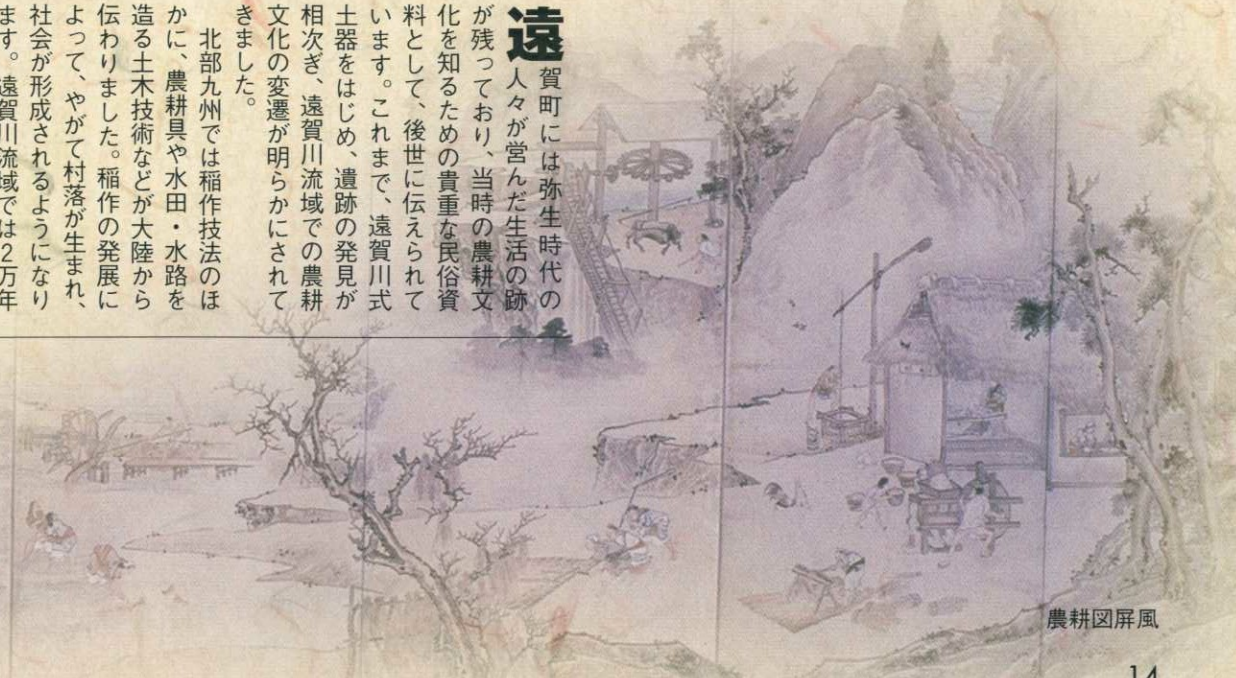 遠賀町には弥生時代の
人々が営んだ生活の跡
が残っており、当時の農耕文
化を知るための貴重な民俗資
料として、後世に伝えられて
います。これまで、遠賀川式
土器をはじめ、遺跡の発見が
相次ぎ、遠賀川流域での農耕
文化の変遷が明らかにされて
きました。
北部九州では稲作技法のほ
かに、農耕具や水田・水路を
造る土木技術などが大陸から
伝わりました。稲作の発展に
よって、やがて村落が生まれ、
社会が形成されるようになり
ます。遠賀川流域では2万年
農耕図屏風
14